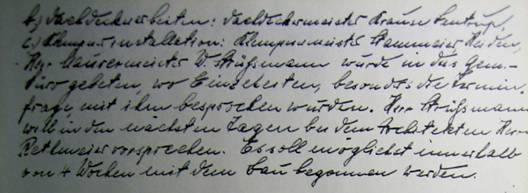 b) Dachdeckerarbeiten: Dachdeckermeister Krause Bentrup,
c) Klempnerinstallation: Klempnermeister Hammeier Heiden,
Herr Maurermeister W. Strüßmann wurde in das Gem.-
Büro gebeten, wo Einzelheiten, besonders die Termin-
frage, mit ihm besprochen wurden. Herr Strüßmann
will in den nächsten Tagen bei dem Architekten Herrn
Rethmeier vorsprechen. Es soll möglichst innerhalb
von 4 Wochen mit dem Bau begonnen werden.